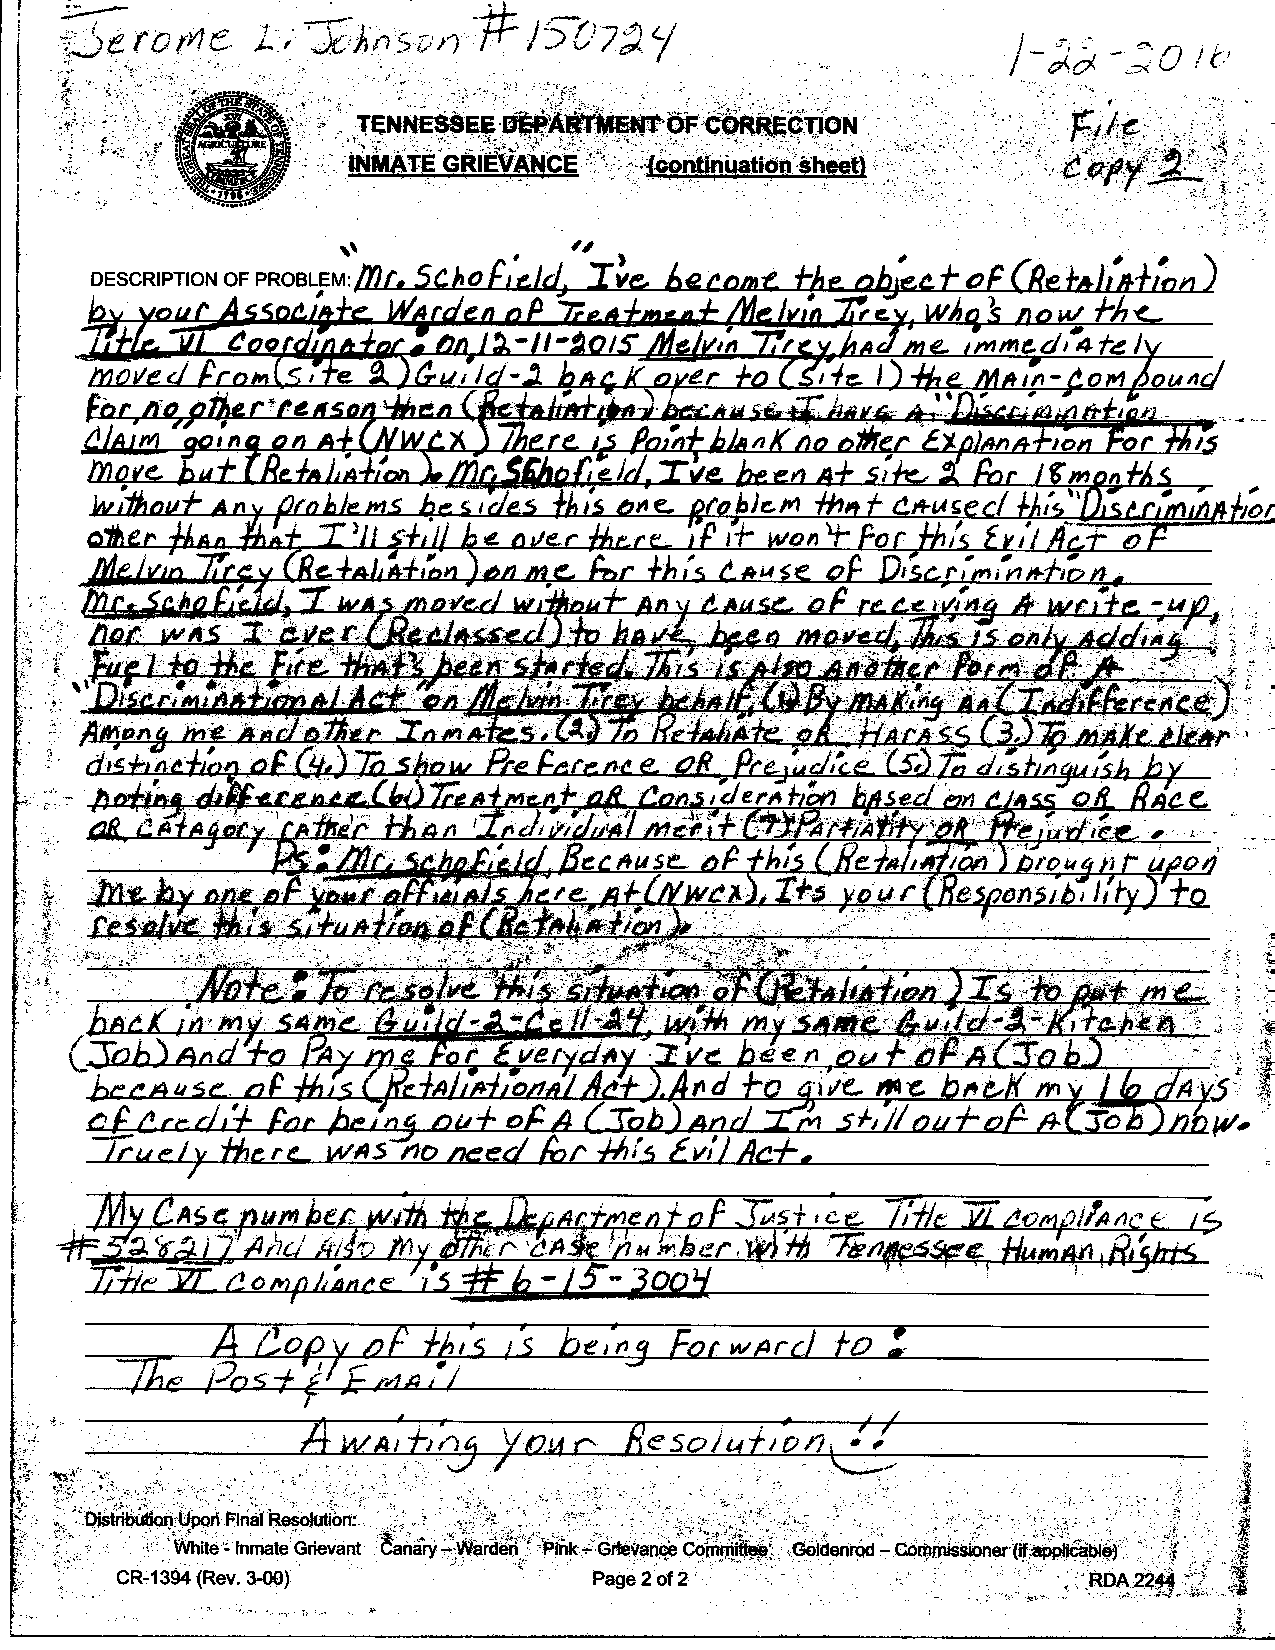 Jerome L. Johnson # 150724
1-22-2016
File
Copy 2
AGRICULTURE
TENNESSEE DEPARTMENT OF CORRECTION
INMATE GRIEVANCE (continuation sheet)
DESCRIPTION OF PROBLEM: "Mr. Schofield," I've become the object of (Retaliation)
by your Associate Warden of Treatment Melvin Tirey, Who's now the
Title VI Coordinator. On, 12-11-2015 Melvin Tirey, had me immediately
moved from (site 2) Guild-2 back over to (site 1) the Main-Compound
for no other reason then (Retaliation) because I have a "Discrimination
Claim" going on At (NWCX) There is Point blank no other Explanation For this
move but (Retaliation). Mr. Schofield, I've been At site 2 for 18 months
without Any problems besides this one problem that caused this "Discrimination
other than that I'll still be over there if it won't for this Evil Act of
Melvin Tirey (Retaliation) on me for this cause of Discrimination.
Mr. Schofield, I was moved without Any cause of receiving A write-up,
nor was I ever (Reclassed) to have been moved, This is only Adding
Fuel to the Fire that's been started. This is Also Another Form of A
"Discriminational Act" on Melvin Tirey behalf, (1) By making An (Indifference)
Among me And other Inmates. (2.) To Retaliate or Harass (3.) To make clear
distinction of (4.) To show Preference OR Prejudice (5.) To distinguish by
noting difference (6.) Treatment OR Consideration based on class OR Race
OR Catagory rather than Individual merit (7.) Partiality OR Prejudice.
Ps: Mr. Schofield, Because of this (Retaliation) brought upon
me by one of your officials here At (NWCX), Its your (Responsibility) to
resolve this situation of (Retaliation).
Note: To resolve this situation of (Retaliation) Is to put me
back in my same Guild-2-Cell-24, with my same Guild-2-Kitchen
(Job) And to Pay me For Everyday I've been out of A (Job)
because of this (Retaliational Act). And to give me back my 16 days
of Credit for being out of A (Job) And I'm still out of A (Job) now.
Truely there was no need for this Evil Act.
My Case number with the Department of Justice Title VI compliance is
#528217 And Also my other case number with Tennessee Human Rights
Title VI Compliance is # 6-15-3004
A Copy of this is being Forward to:
The Post & Email
Awaiting your Resolution!!
Distribution Upon Final Resolution:
White - Inmate Grievant Canary – Warden Pink – Grievance Committee Goldenrod – Commissioner (if applicable)
CR-1394 (Rev. 3-00) Page 2 of 2 RDA 2244